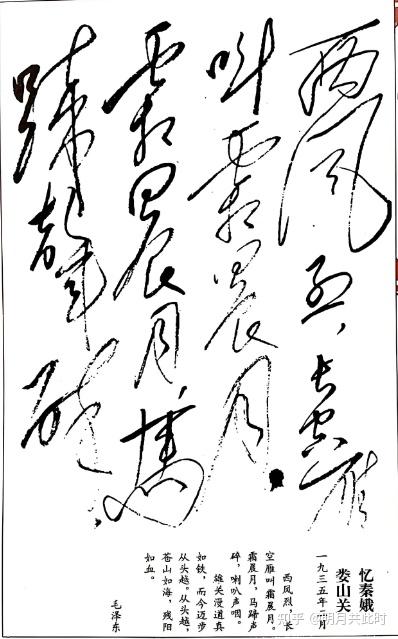 西风烈，长空雁
叫霜晨月。
霜晨月，馬
蹄聲碎
忆秦娥
娄山关
一九三五年二月
西风烈，长
空雁叫霜晨月。
霜晨月，马蹄声
碎，喇叭声咽。
雄关漫道真
如铁，而今迈步
从头越。从头越，
苍山如海，残阳
如血。
毛泽东
知乎 @明月共此时